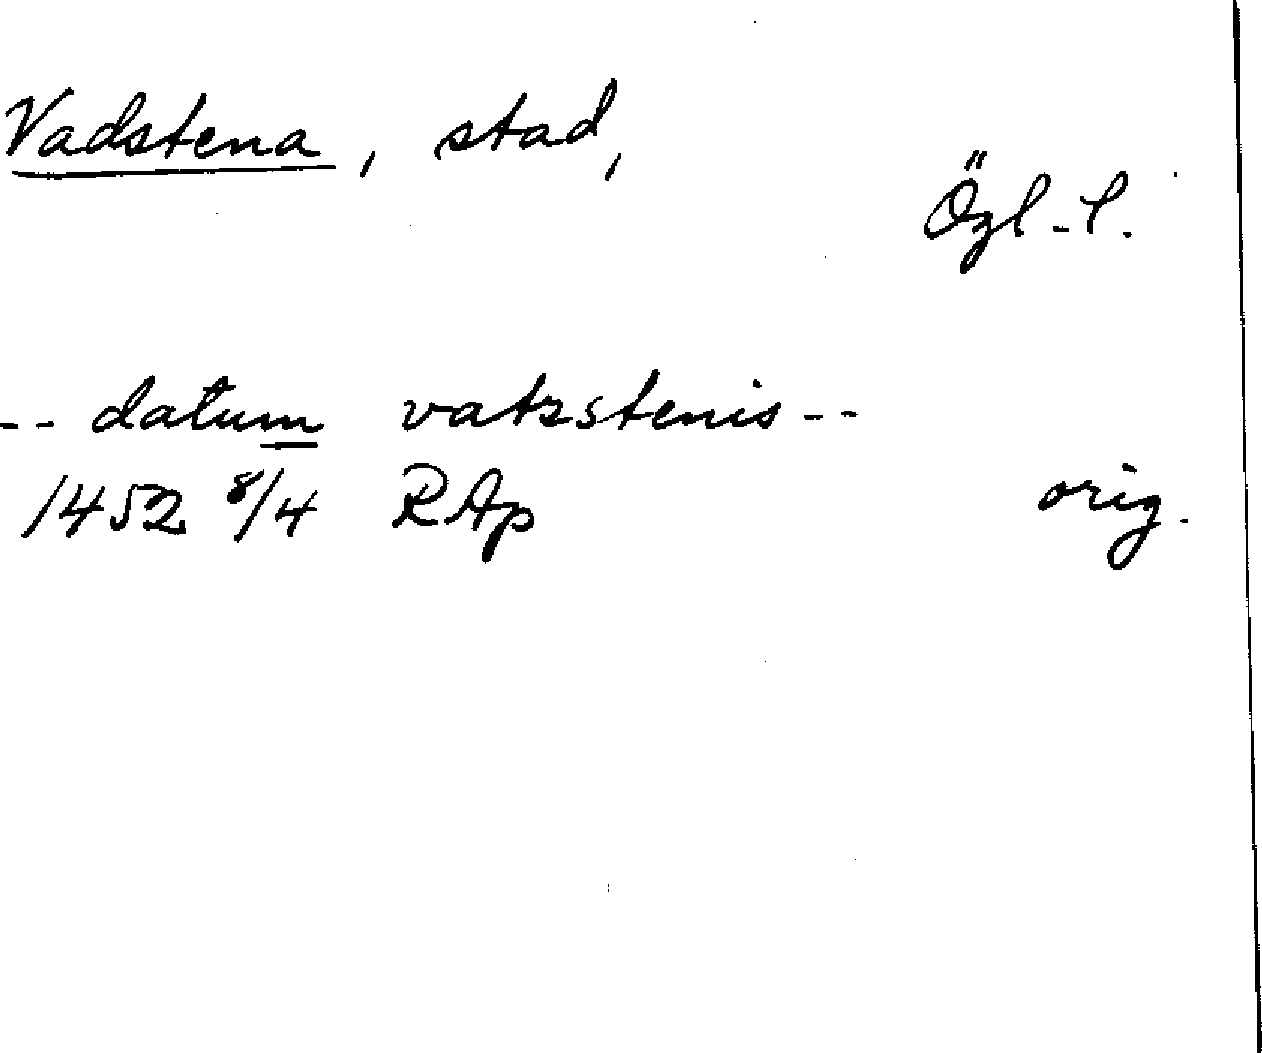 Vadstena, stad,
Ögl. l.
-- datum vatzstenis --
1452 8/4 RAp orig.